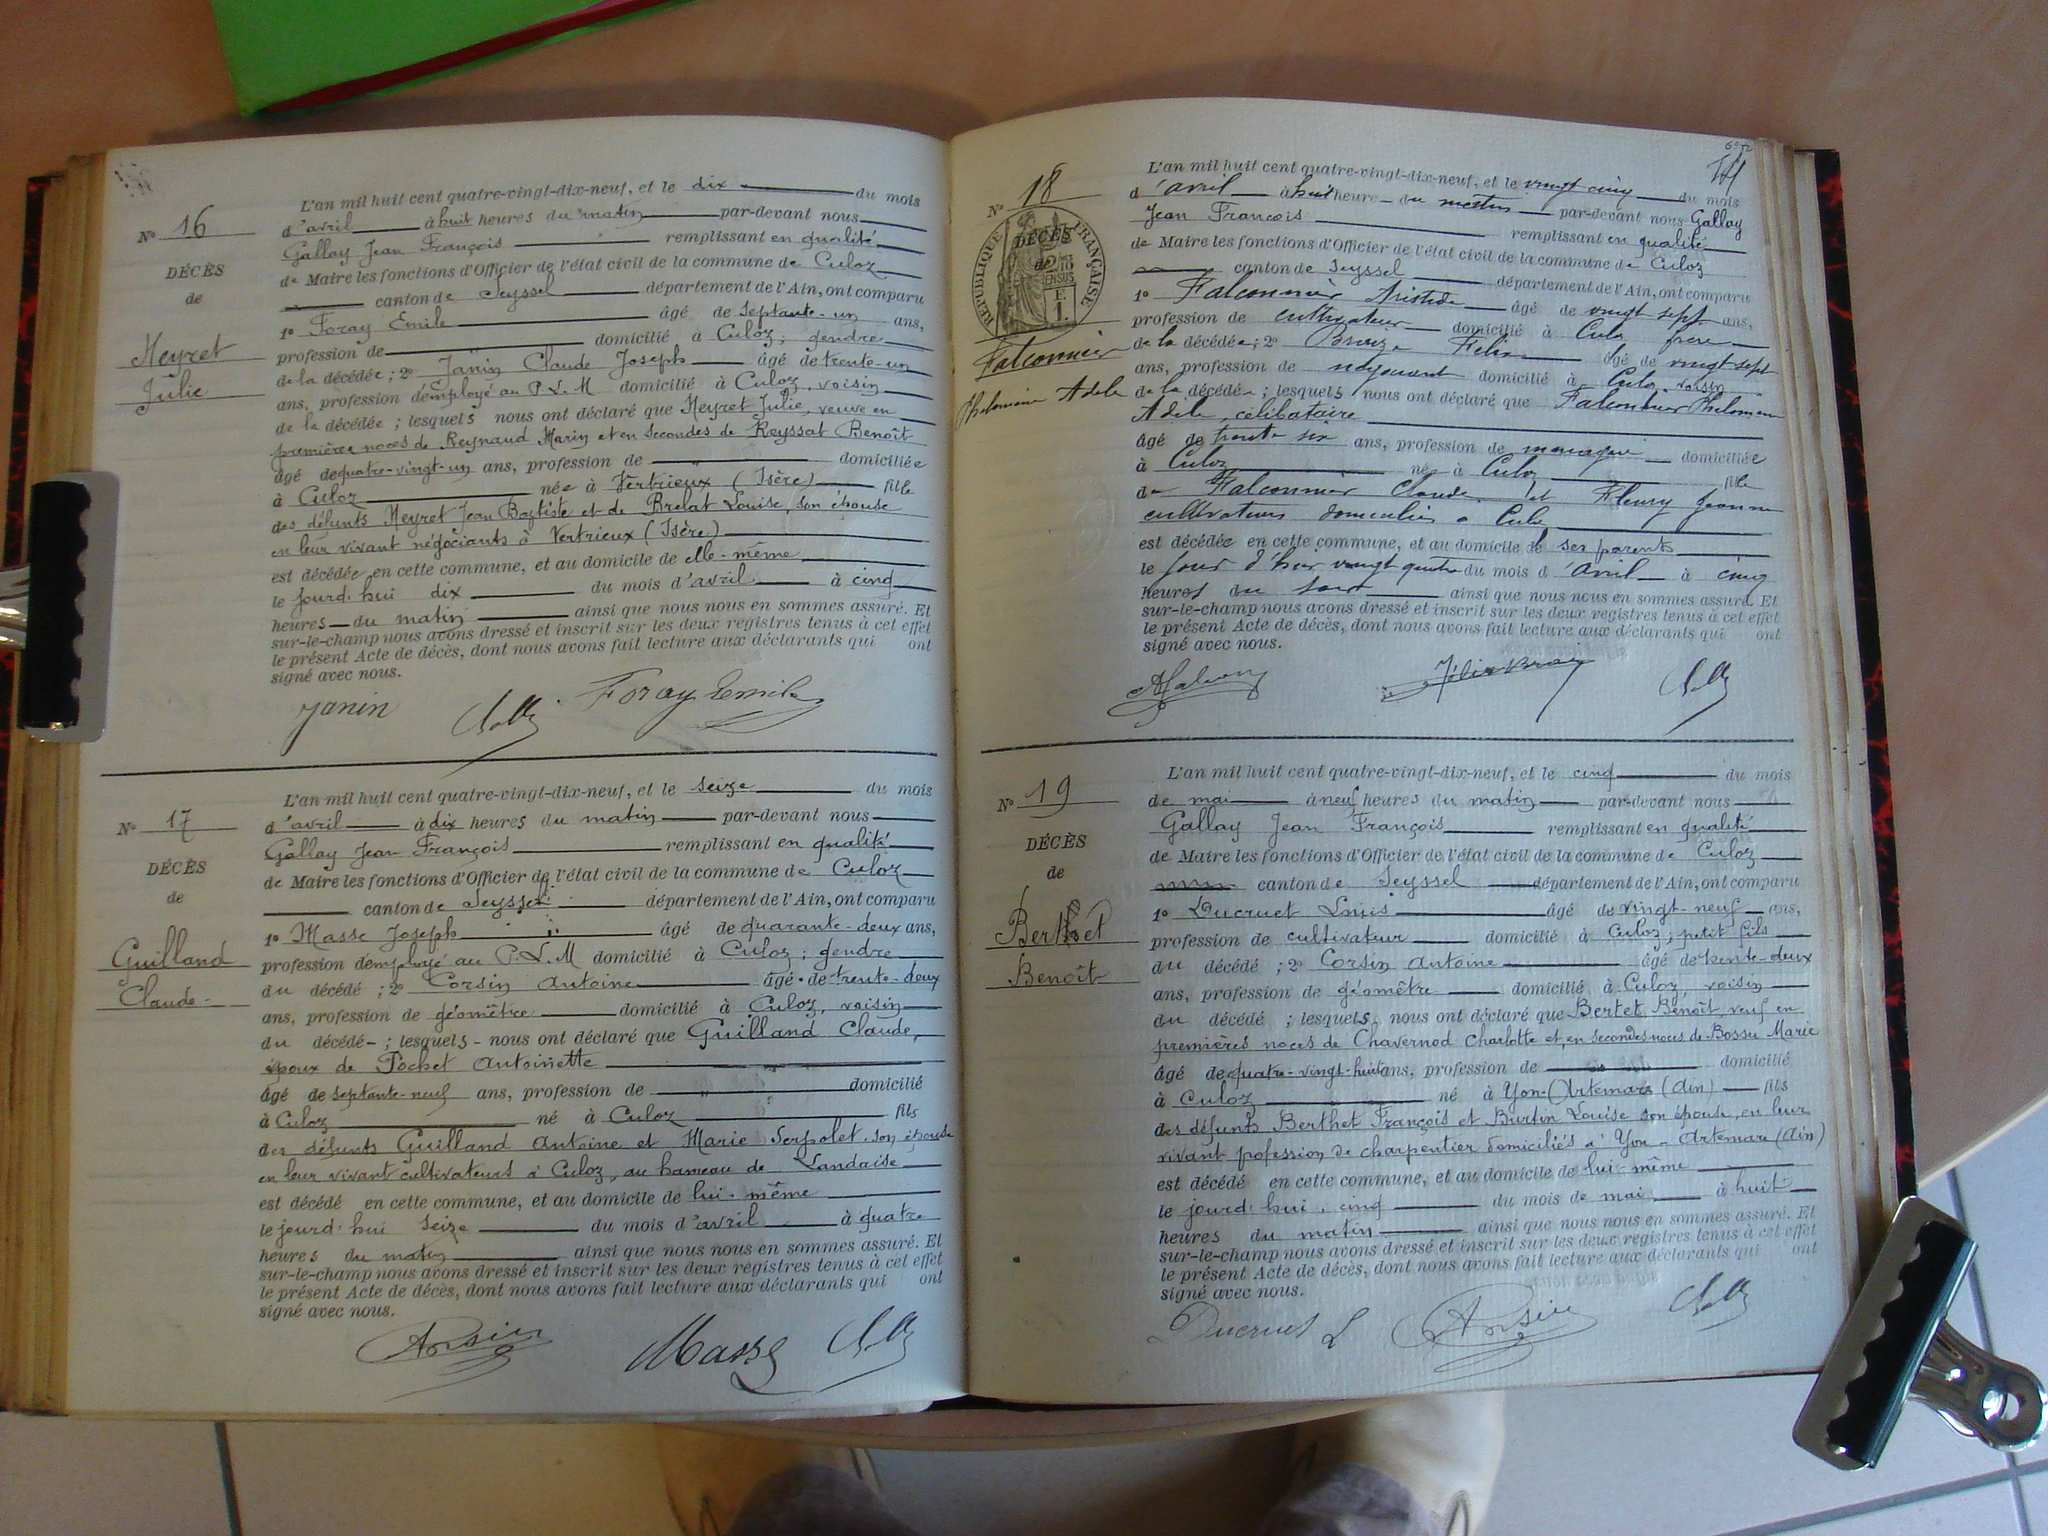 N° 16
DÉCÈS
de
Meyret
Julie
L'an mil huit cent quatre-vingt-dix-neuf, et le dix du mois
d'avril à huit heures du matin par-devant nous
Gallay Jean François remplissant en qualité
de Maire les fonctions d'Officier de l'état civil de la commune de Culoz
canton de Seyssel département de l'Ain, ont comparu
1° Foray Emile âgé de septante-un ans,
profession de domicilié à Culoz; gendre
de la décédée; 2° Janin Claude Joseph âgé de trente-un
ans, profession d'employé au P.L.M domicilié à Culoz, voisin
de la décédée; lesquels nous ont déclaré que Meyret Julie, veuve en
première noces de Reynaud Marin et en secondes de Reyssat Benoît
âgé de quatre-vingt-un ans, profession de domiciliée
à Culoz née à Vertrieux (Isère) fille
des défunts Meyret Jean Baptiste et de Brelat Louise, son épouse
en leur vivant négociants à Vertrieux (Isère)
est décédée en cette commune, et au domicile de elle-même
le jourd'hui dix du mois d'avril à cinq
heures du matin ainsi que nous nous en sommes assuré. Et
sur-le-champ nous avons dressé et inscrit sur les deux registres tenus à cet effet
le présent Acte de décès, dont nous avons fait lecture aux déclarants qui ont
signé avec nous.
Janin Foray Emile
N° 17
DÉCÈS
de
Guilland
Claude
L'an mil huit cent quatre-vingt-dix-neuf, et le seize du mois
d'avril à dix heures du matin par-devant nous
Gallay Jean François remplissant en qualité
de Maire les fonctions d'Officier de l'état civil de la commune de Culoz
canton de Seyssel département de l'Ain, ont comparu
1° Masse Joseph âgé de quarante-deux ans,
profession d'employé au P.L.M domicilié à Culoz; gendre
du décédé; 2° Corsin Antoine âgé de trente-deux
ans, profession de géomètre domicilié à Culoz, voisin
du décédé; lesquels nous ont déclaré que Guilland Claude,
époux de Pochet Antoinette
âgé de septante-neuf ans, profession de domicilié
à Culoz né à Culoz fils
des défunts Guilland Antoine et Marie Serpolet, son épouse
en leur vivant cultivateurs à Culoz, au hameau de Landaise
est décédé en cette commune, et au domicile de lui-même
le jourd'hui seize du mois d'avril à quatre
heures du matin ainsi que nous nous en sommes assuré. Et
sur-le-champ nous avons dressé et inscrit sur les deux registres tenus à cet effet
le présent Acte de décès, dont nous avons fait lecture aux déclarants qui ont
signé avec nous.
Corsin Masse
N° 18
RÉPUBLIQUE FRANÇAISE
DÉCÈS
de
Falconnier
Philomène Adèle
L'an mil huit cent quatre-vingt-dix-neuf, et le vingt cinq du mois
d'avril à huit heure du matin par-devant nous Gallay
Jean François remplissant en qualité
de Maire les fonctions d'Officier de l'état civil de la commune de Culoz
canton de Seyssel département de l'Ain, ont comparu
1° Falconnier Aristide âgé de vingt sept ans,
profession de cultivateur domicilié à Culoz frère
de la décédée; 2° Félix âgé de vingt sept
ans, profession de domicilié à Culoz voisin
de la décédée; lesquels nous ont déclaré que Falconnier Philomène
Adèle, célibataire
âgé de trente six ans, profession de domiciliée
à Culoz né à Culoz fille
de Falconnier Claude et Fleury Jeanne
cultivateurs domiciliés à Culoz
est décédée en cette commune, et au domicile de ses parents
le jour d'hier vingt quatre du mois d'avril à cinq
heures du soir ainsi que nous nous en sommes assuré. Et
sur-le-champ nous avons dressé et inscrit sur les deux registres tenus à cet effet
le présent Acte de décès, dont nous avons fait lecture aux déclarants qui ont
signé avec nous.
N° 19
DÉCÈS
de
Berthet
Benoît
L'an mil huit cent quatre-vingt-dix-neuf, et le cinq du mois
de mai à neuf heures du matin par-devant nous
Gallay Jean François remplissant en qualité
de Maire les fonctions d'Officier de l'état civil de la commune de Culoz
canton de Seyssel département de l'Ain, ont comparu
1° Ducruet Louis âgé de vingt-neuf ans,
profession de cultivateur domicilié à Culoz; petit fils
du décédé; 2° Corsin Antoine âgé de trente-deux
ans, profession de géomètre domicilié à Culoz, voisin
du décédé; lesquels nous ont déclaré que Bertet Benoît, veuf en
premières noces de Chavernod Charlotte et en secondes noces de Bossu Marie
âgé de quatre-vingt-huit ans, profession de domicilié
à Culoz né à Yon-Artemare (Ain) fils
des défunts Berthet François et Burtin Louise son épouse, en leur
vivant profession de charpentier domiciliés à Yon-Artemare (Ain)
est décédé en cette commune, et au domicile de lui-même
le jourd'hui cinq du mois de mai à huit
heures du matin ainsi que nous nous en sommes assuré. Et
sur-le-champ nous avons dressé et inscrit sur les deux registres tenus à cet effet
le présent Acte de décès, dont nous avons fait lecture aux déclarants qui ont
signé avec nous.
Ducruet L Corsin